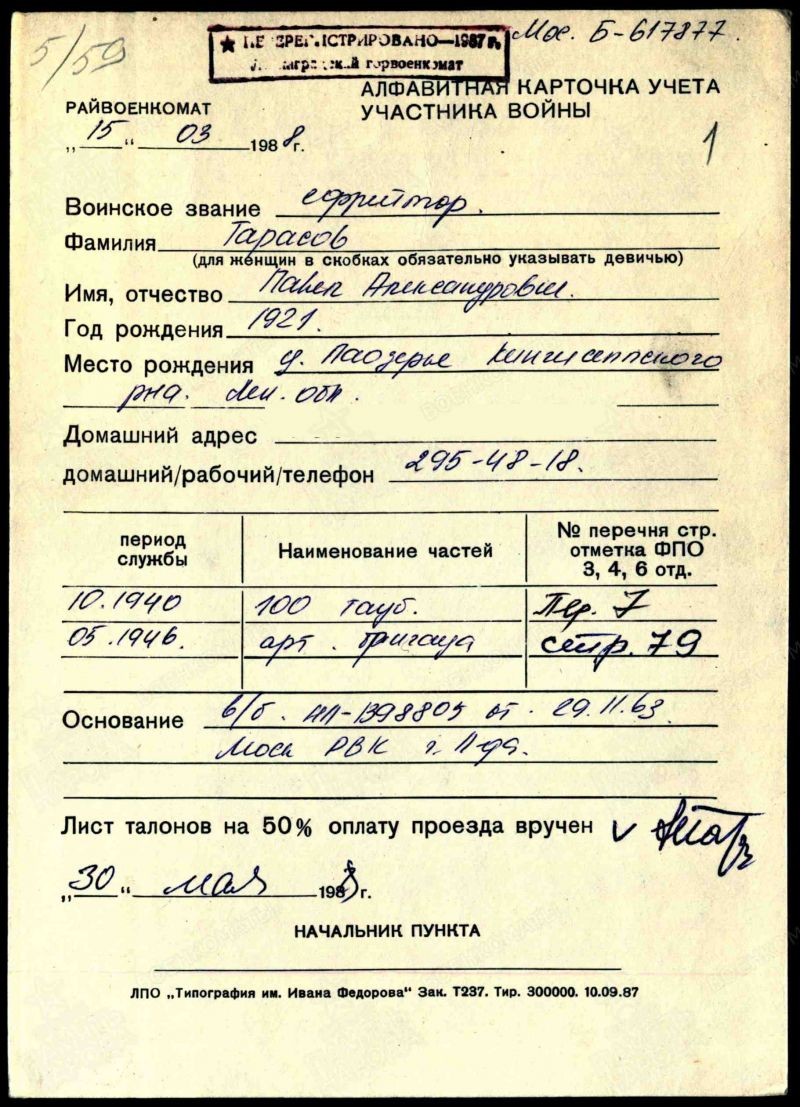 5/59
★ ПЕРЕРЕГИСТРИРОВАНО—1987 г.
Ленинградский горвоенкомат
Мос. Б-617877
АЛФАВИТНАЯ КАРТОЧКА УЧЕТА
УЧАСТНИКА ВОЙНЫ
РАЙВОЕНКОМАТ
„15“ 03 1988 г.
1
Воинское звание ефрейтор.
Фамилия Тарасов
(для женщин в скобках обязательно указывать девичью)
Имя, отчество Павел Александрович.
Год рождения 1921.
Место рождения д. Лаозерье Кингисеппского
рна. Лен. обл.
Домашний адрес
домашний/рабочий/телефон 295-48-18.
период службы
Наименование частей
№ перечня стр. отметка ФПО 3, 4, 6 отд.
10.1940 100 гауб. Пер. 7
05.1946. арт. бригада стр. 79
Основание в/б. НЛ-1398805 от. 29.11.63.
Моск РВК г. Л-да.
Лист талонов на 50% оплату проезда вручен v
„30“ мая 1988 г.
НАЧАЛЬНИК ПУНКТА
ЛПО „Типография им. Ивана Федорова“ Зак. Т237. Тир. 300000. 10.09.87